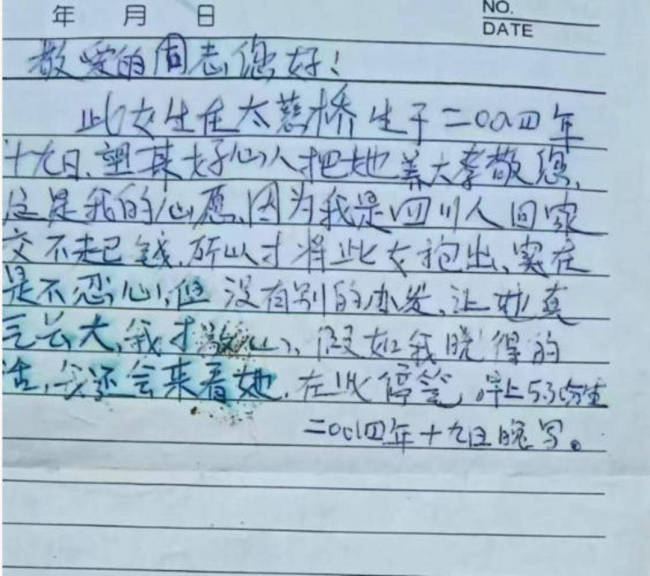 年 月 日
NO.
DATE
敬爱的同志您好！
此女生在太慈桥生于二〇〇四年
十九日、望某好心人把她养大孝敬您、
这是我的心愿、因为我是四川人回家
交不起已钱、所以才将此女抱出、实在
是不忍心、但没有别的办发、让她真
长大、我才放心、假如我晓得的
话、我还会来看她、在此停笔、早上5.30分生
二〇〇四年十九日晚写。